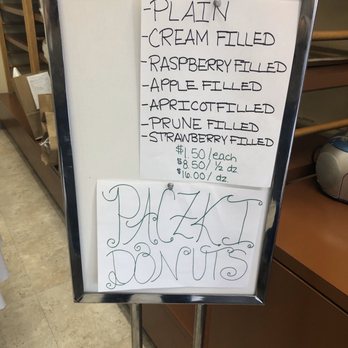 -PLAIN
-CREAM FILLED
-RASPBERRY FILLED
-APPLE FILLED
-APRICOT FILLED
-PRUNE FILLED
-STRAWBERRY FILLED
$1.50/each
$8.50/ ½ dz
$16.00/ dz
PACZKI
DONUTS